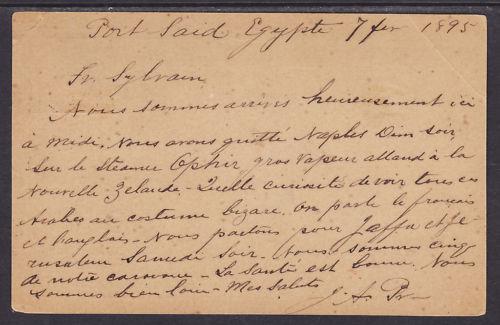 Port Said Egypte 7 fev 1895
Fr. Sylvain
Nous sommes arrivés heureusement ici
à midi. Nous avons quitté Naples Dim soir
sur le steamer Ophir gros vapeur allant à la
Nouvelle Zelande - Quelle curiosité de voir tous ces
Arabes au costume bizare. On parle le français
et l'anglais - Nous partons pour Jaffa et Jé
rusalem Samedi soir - Nous sommes cinq
de notre caravane - La Santé est bonne. Nous
sommes bien loin - Mes Saluts
J. A.